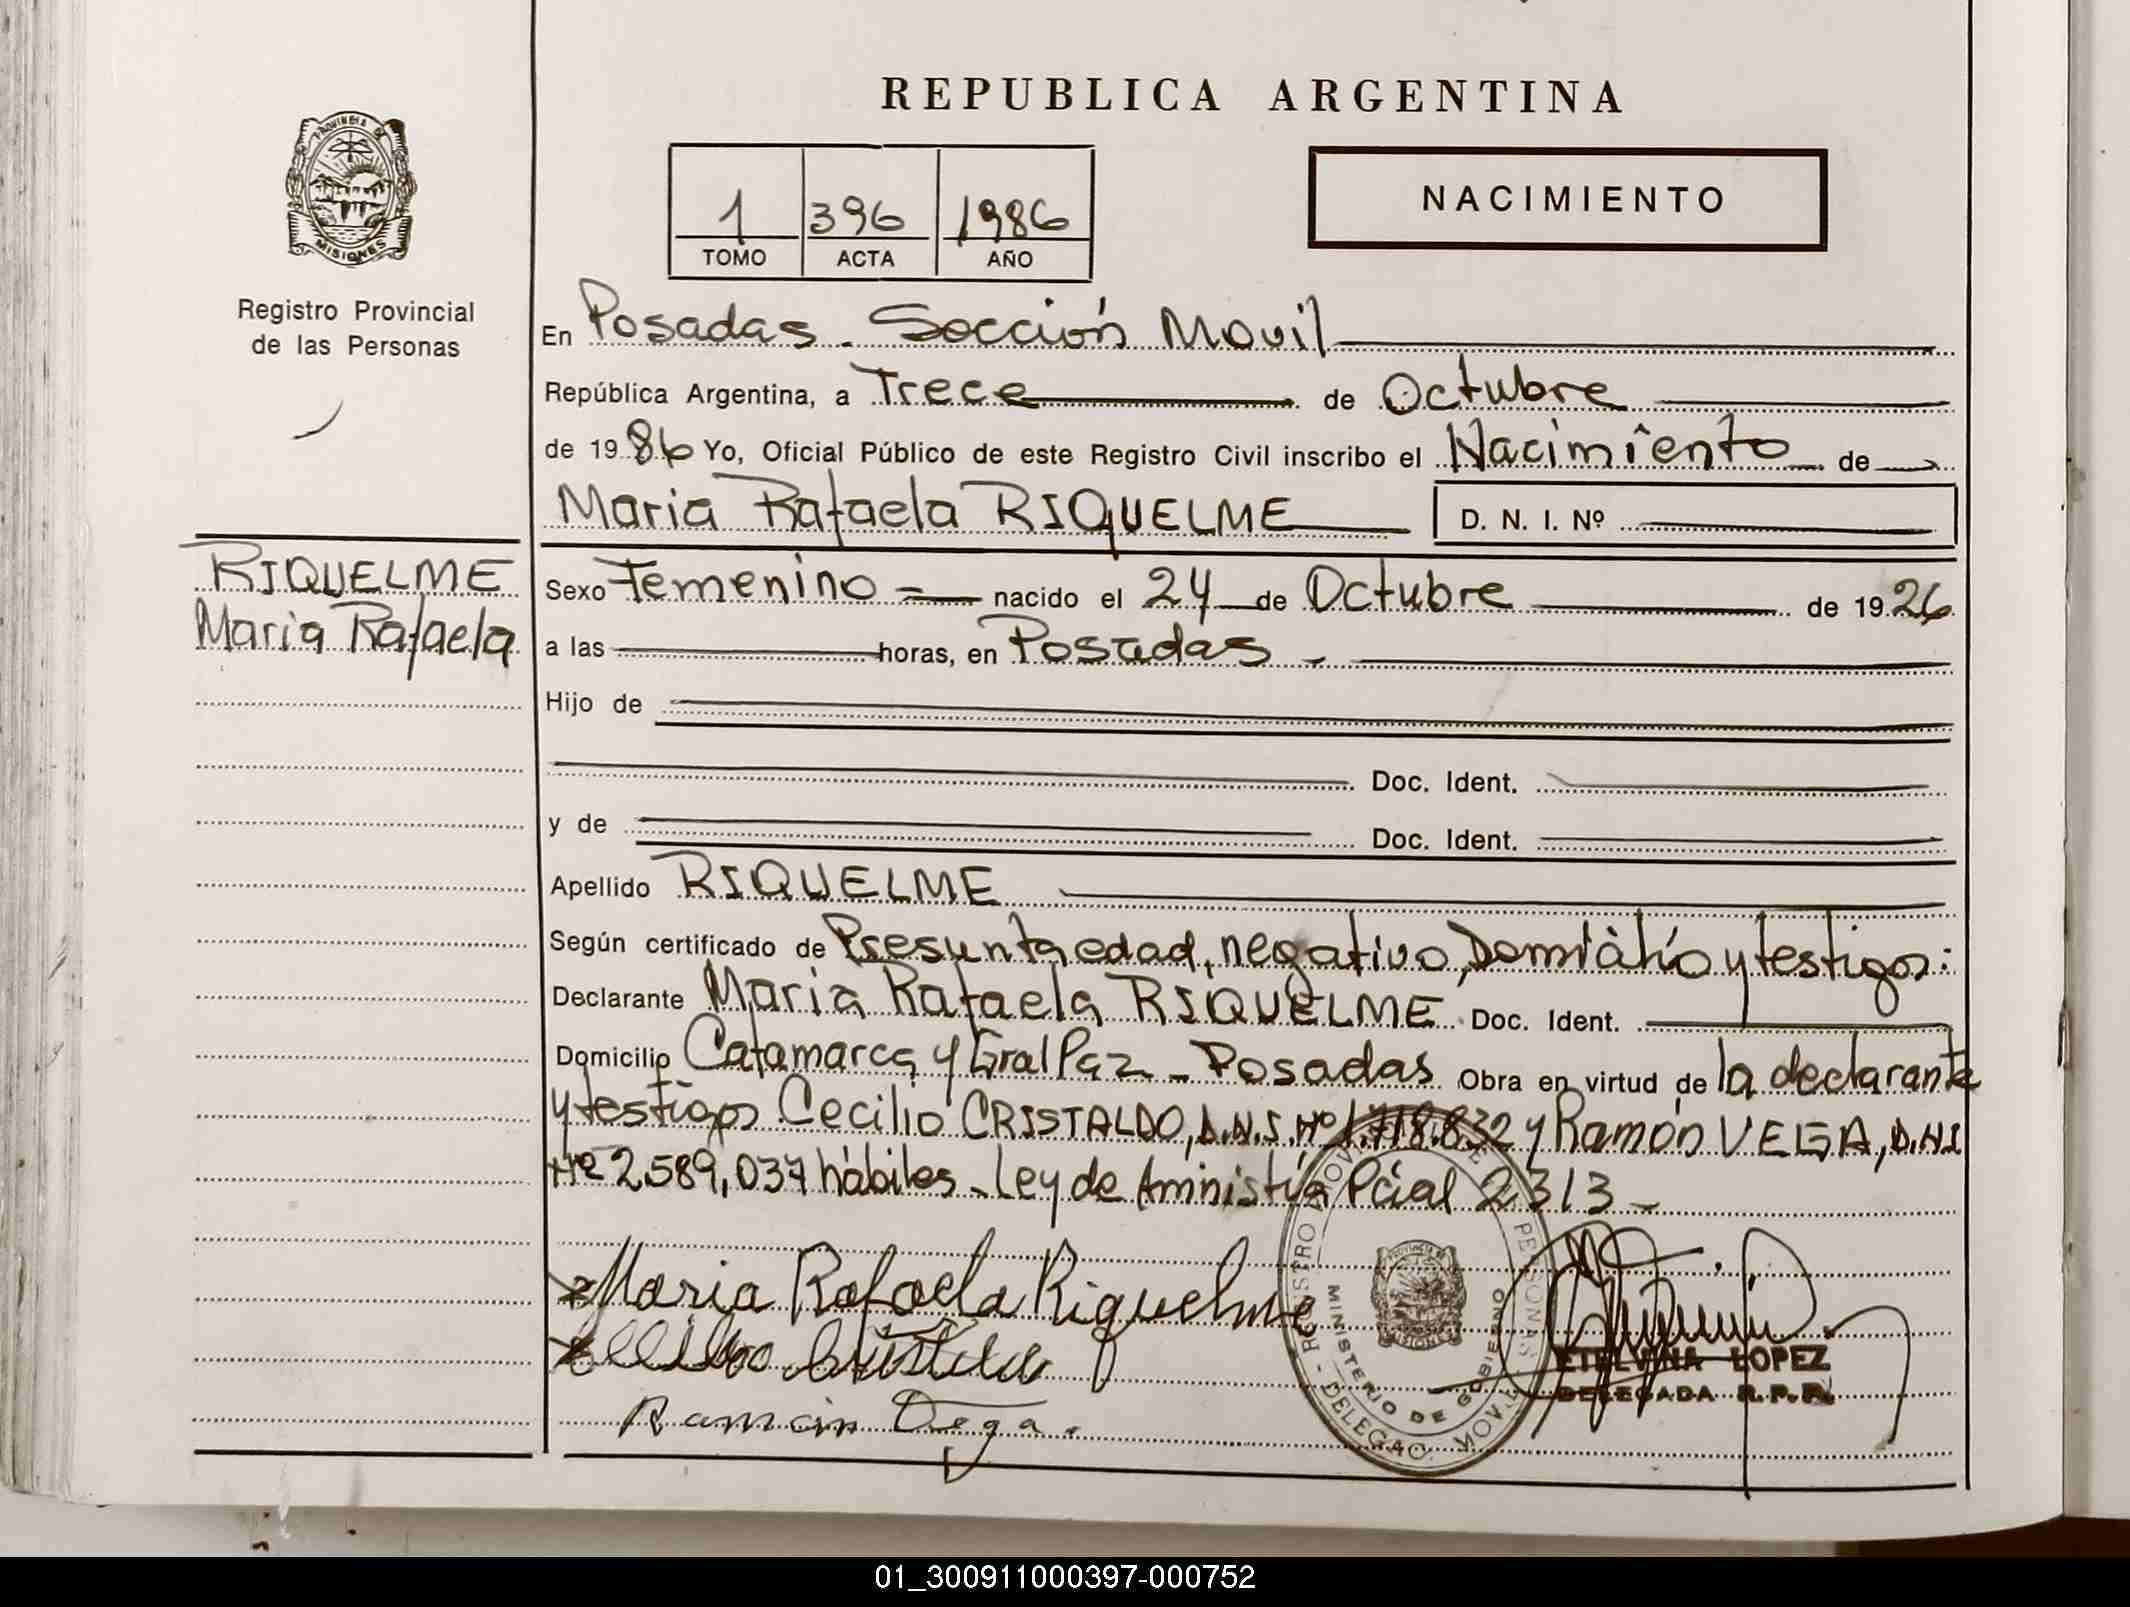 REPUBLICA ARGENTINA
PROVINCIA DE
MISIONES
1 396 1986
TOMO ACTA AÑO
NACIMIENTO
Registro Provincial
de las Personas
En Posadas. Sección Movil
República Argentina, a Trece de Octubre
de 1986 Yo, Oficial Público de este Registro Civil inscribo el Nacimiento de
Maria Rafaela RIQUELME D. N. I. Nº
RIQUELME
Maria Rafaela
Sexo Femenino nacido el 24 de Octubre de 1926
a las horas, en Posadas.
Hijo de
Doc. Ident.
y de Doc. Ident.
Apellido RIQUELME
Según certificado de Presunta edad, negativo, y testigos:
Declarante Maria Rafaela RIQUELME Doc. Ident.
Domicilio Catamarca y Gral Paz - Posadas Obra en virtud de la declarante
y testigos Cecilio CRISTALDO, D.N.I. Nº 1.718.832 y Ramón VEGA, D.N.I.
Nº 2.589.037 hábiles - Ley de Aministía Pcial 2313 -
Maria Rafaela Riquelme
Ramón Vega.
REGISTRO PROVINCIAL DE LAS PERSONAS - DELEGAC. MOVIL
MINISTERIO DE GOBIERNO
ETELVINA LOPEZ
DELEGADA R.P.P.
01_300911000397-000752